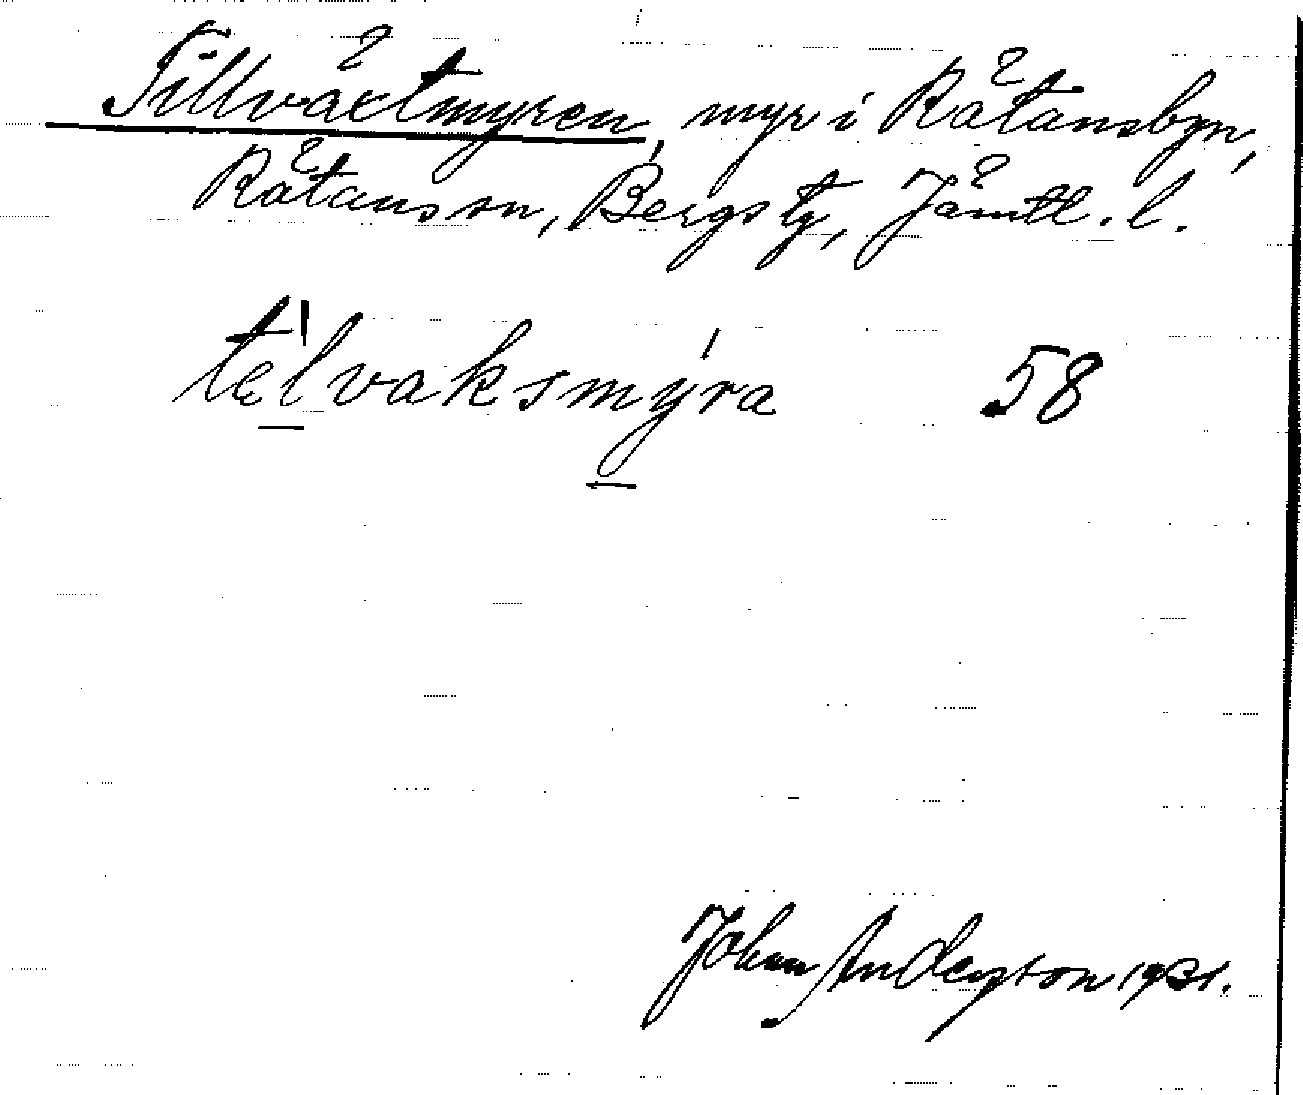 Tillväxtmyren, myr i Rätansbyn,
Rätans sn, Bergs tg, Jämtl. l.
te̲'lvaksmy̲'ra 58
Johan Anderson 1931.